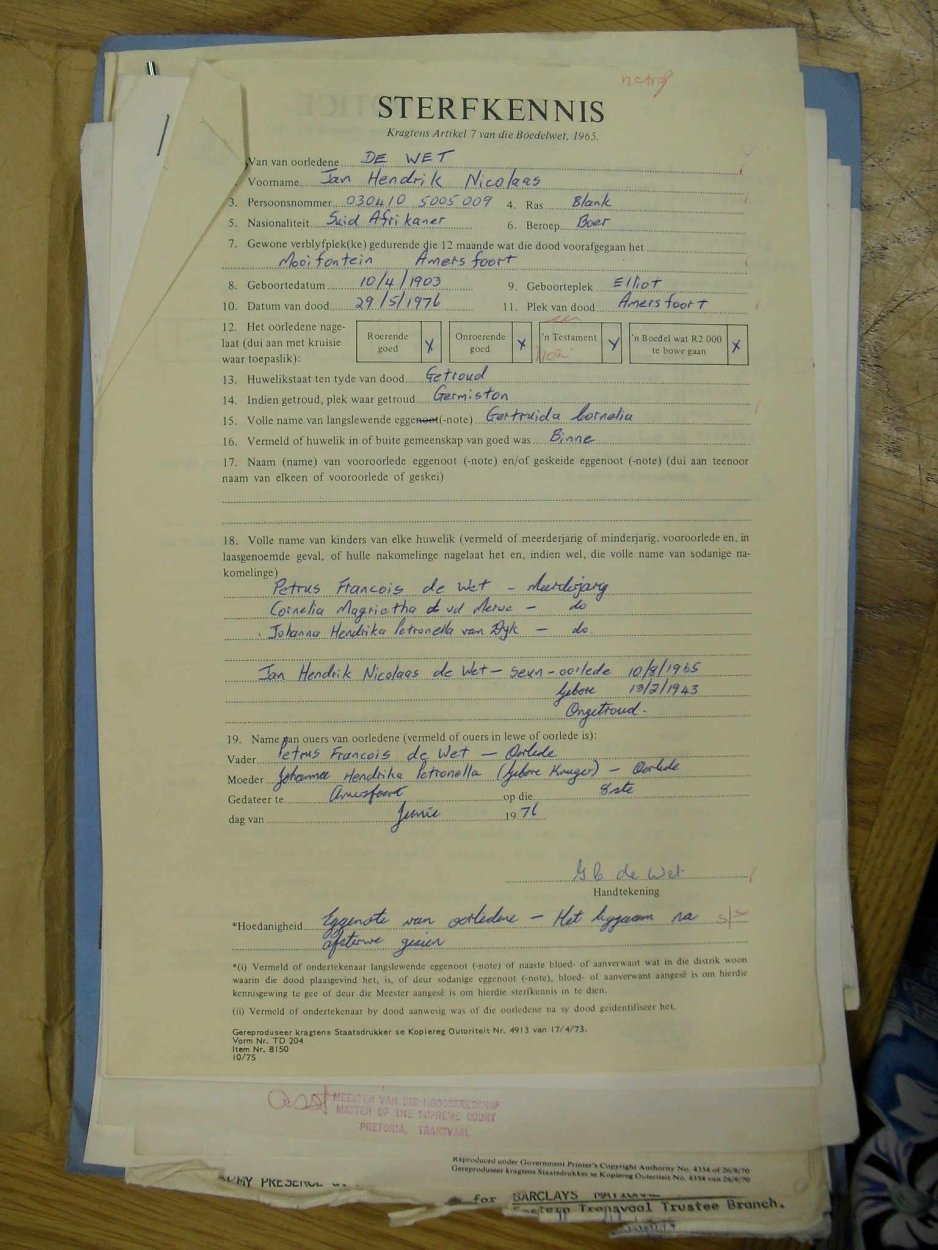 STERFKENNIS
Kragtens Artikel 7 van die Boedelwet, 1965.
Van van oorledene DE WET
Voorname Jan Hendrik Nicolaas
3. Persoonsnommer 030410 5005 009 4. Ras Blank
5. Nasionaliteit Suid Afrikaner 6. Beroep Boer
7. Gewone verblyfplek(ke) gedurende die 12 maande wat die dood voorafgegaan het
Mooifontein Amersfoort
8. Geboortedatum 10/4/1903 9. Geboorteplek Elliot
10. Datum van dood 29/5/1976 11. Plek van dood Amersfoort
12. Het oorledene nagelaat (dui aan met kruisie waar toepaslik): Roerende goed X Onroerende goed X 'n Testament X 'n Boedel wat R2 000 te bowe gaan X
13. Huwelikstaat ten tyde van dood Getroud
14. Indien getroud, plek waar getroud Germiston
15. Volle name van langslewende eggenoot(-note) Gertruida Cornelia
16. Vermeld of huwelik in of buite gemeenskap van goed was Binne
17. Naam (name) van vooroorlede eggenoot (-note) en/of geskeide eggenoot (-note) (dui aan teenoor
naam van elkeen of vooroorlede of geskei)
18. Volle name van kinders van elke huwelik (vermeld of meerderjarig of minderjarig, vooroorlede en, in
laasgenoemde geval, of hulle nakomelinge nagelaat het en, indien wel, die volle name van sodanige na-
komelinge)
Petrus Francois de Wet – Meerderjarig
Cornelia Magrietha vd Merwe – do
Johanna Hendrika Petronella van Dyk – do.
Jan Hendrik Nicolaas de Wet – seun – oorlede 10/8/1965
Gebore 13/2/1943
Ongetroud.
19. Name van ouers van oorledene (vermeld of ouers in lewe of oorlede is):
Vader Petrus Francois de Wet – Oorlede
Moeder Johanna Hendrika Petronella (gebore Kruger) – Oorlede
Gedateer te Amersfoort op die 8ste
dag van Junie 1976
G C de Wet
Handtekening
*Hoedanigheid Eggenote van oorledene – Het liggaam na
afsterwe gesien
*(i) Vermeld of ondertekenaar langslewende eggenoot (-note) of naaste bloed- of aanverwant wat in die distrik woon
waarin die dood plaasgevind het, is, of deur sodanige eggenoot (-note), bloed- of aanverwant aangesê is om hierdie
kennisgewing te gee of deur die Meester aangesê is om hierdie sterfkennis in te dien.
(ii) Vermeld of ondertekenaar by dood aanwesig was of die oorledene na sy dood geïdentifiseer het.
Gereproduseer kragtens Staatsdrukker se Kopiereg Outoriteit Nr. 4913 van 17/4/73.
Vorm Nr. TD 204
Item Nr. 8150
10/75
MEESTER VAN DIE HOOGGEREGSHOF
MASTER OF THE SUPREME COURT
PRETORIA, TRANSVAAL
Reproduced under Government Printer's Copyright Authority No. 4354 of 26/8/70
Gereproduseer kragtens Staatsdrukker se Kopiereg Outoriteit No. 4354 van 26/8/70
MY PRESENCE
for BARCLAYS NATIONAL
Eastern Transvaal Trustee Branch.